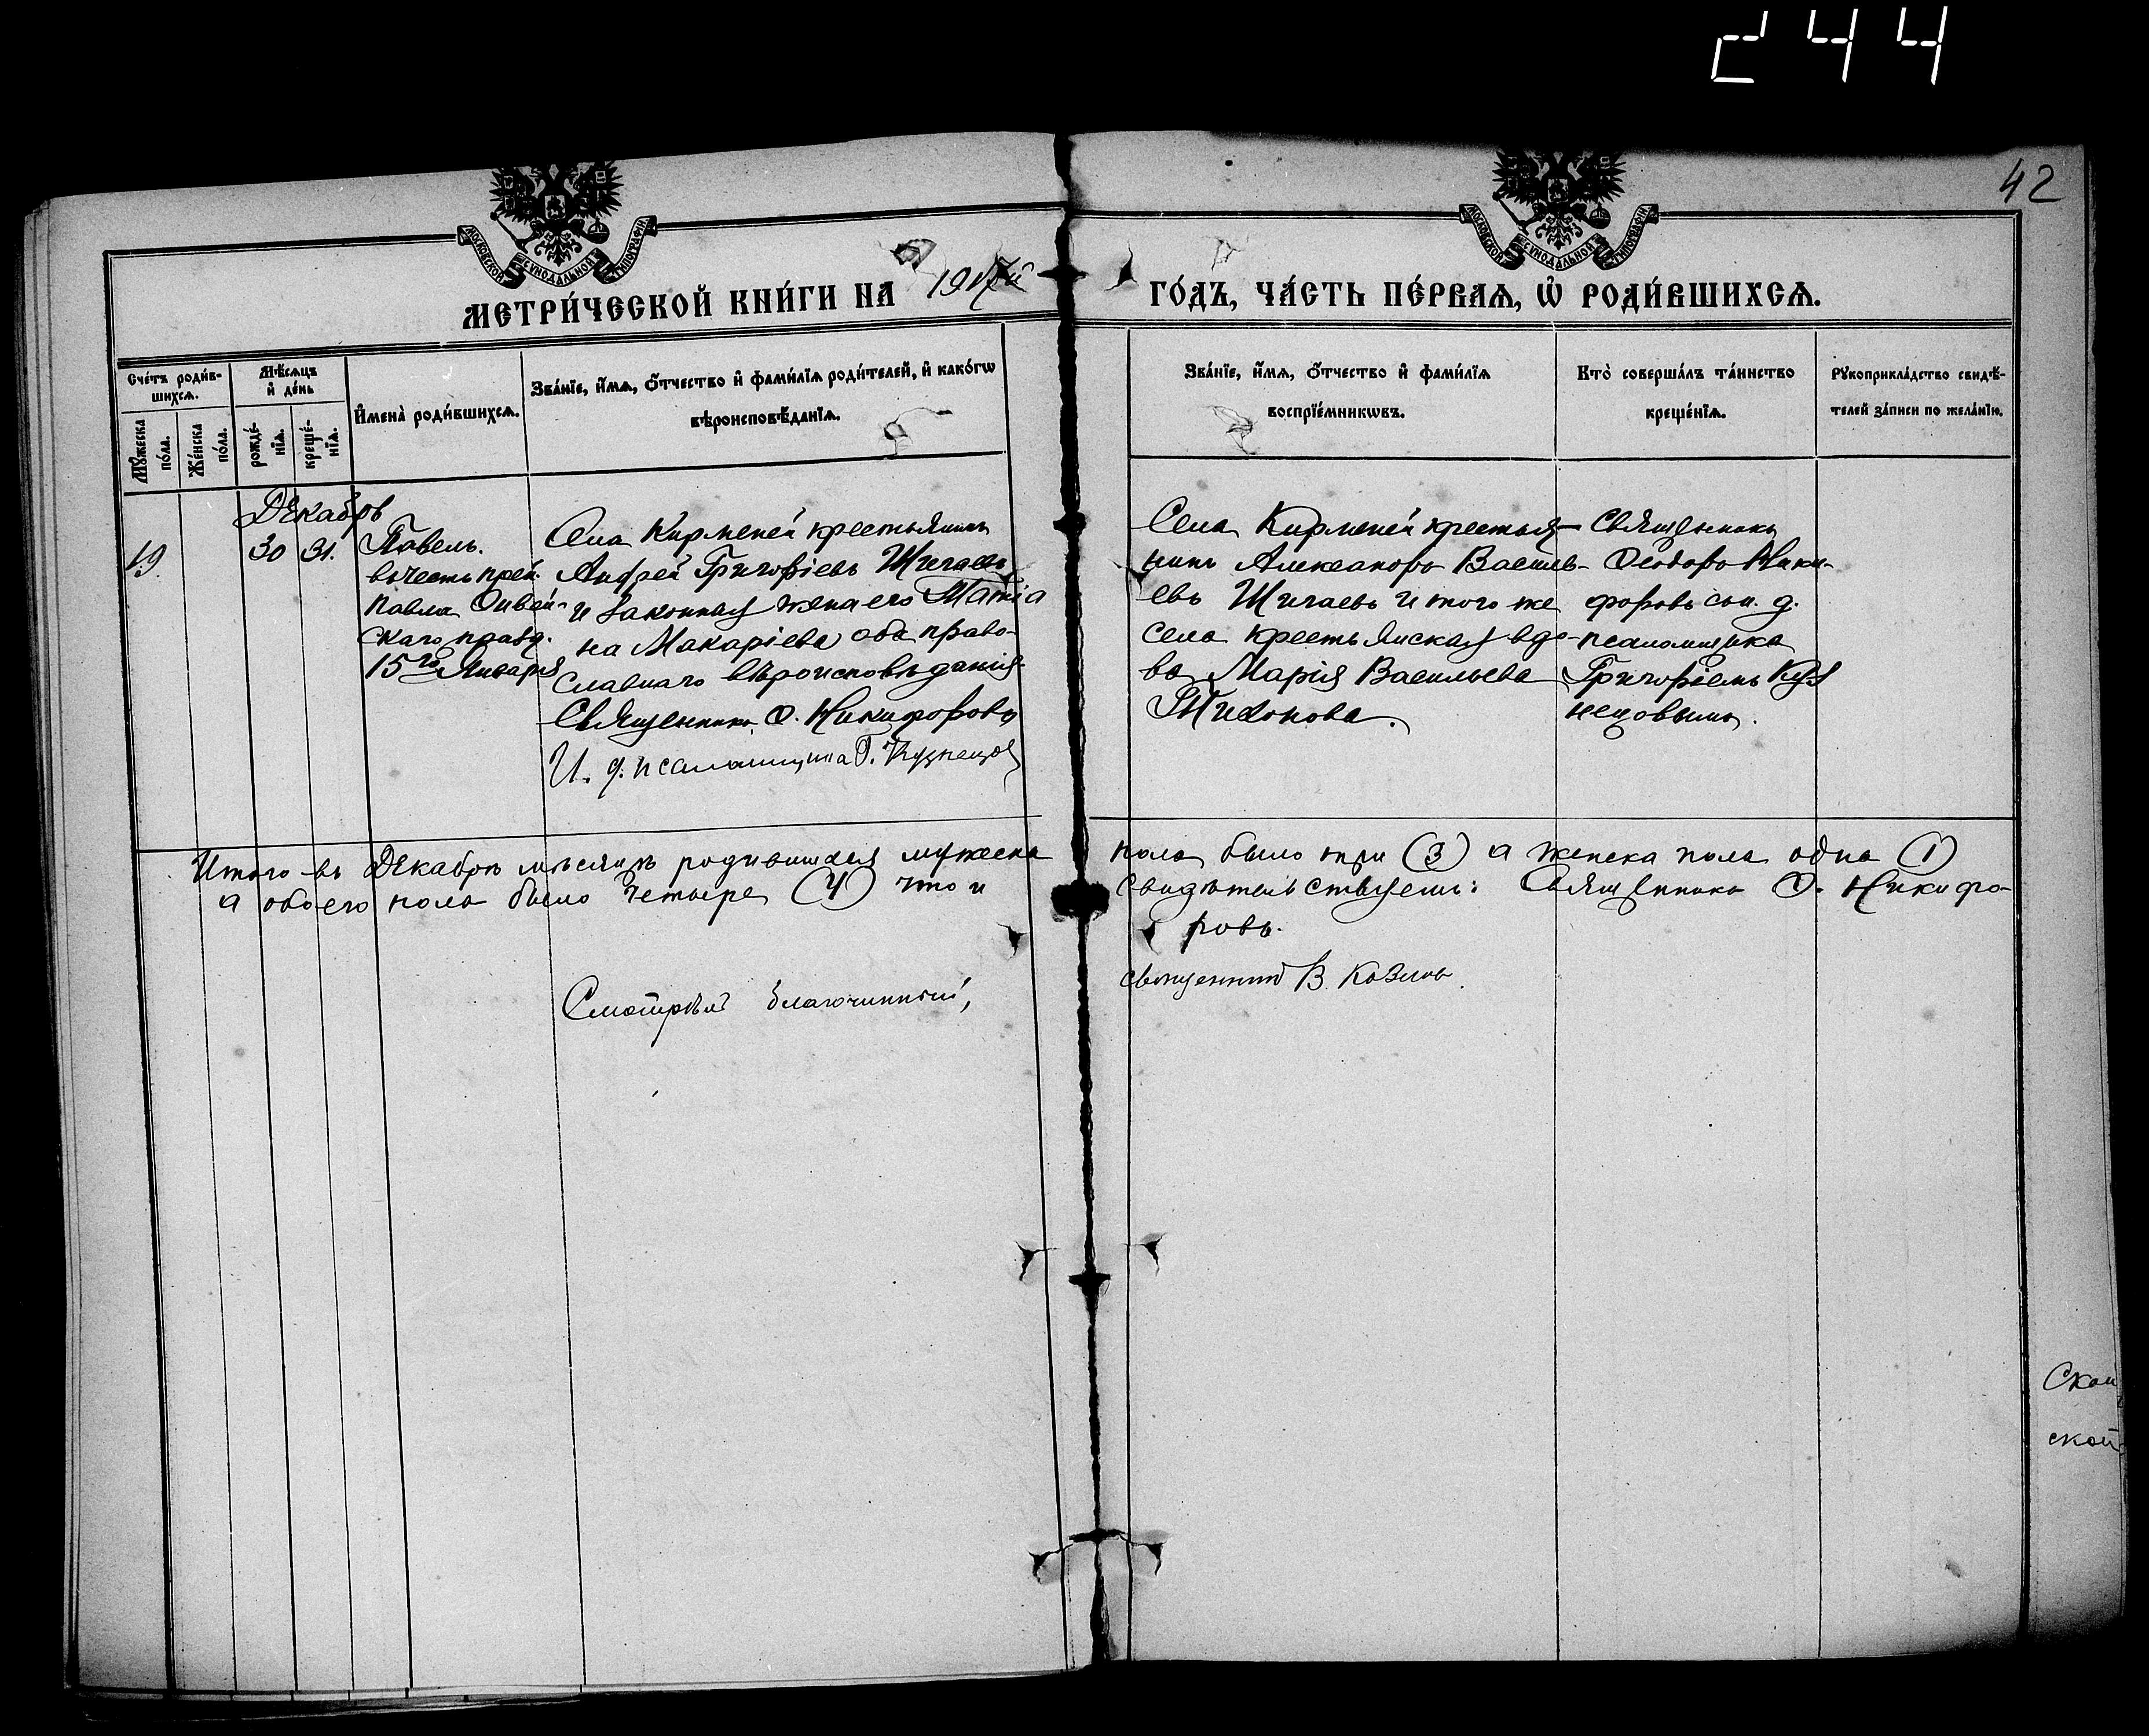 244
42
МОСКОВСКОЙ СѴНОДАЛЬНОЙ ТИПОГРАФІИ
МОСКОВСКОЙ СѴНОДАЛЬНОЙ ТИПОГРАФІИ
МЕТРИ́ЧЕСКОЙ КНИ́ГИ НА 191
ГО́ДЪ, ЧА́СТЬ ПЕ́РВАѦ, Ѡ҆ РОДИ́ВШИХСѦ.
Сче́тъ роди́в-
шихсѧ.
Мꙋ́жеска по́ла.
Же́нска по́ла.
Мѣ́сѧцъ
и҆ де́нь
рожде́-
нїѧ.
креще́-
нїѧ.
И҆мена̀ роди́вшихсѧ.
Зва́нїе, и҆́мѧ, ѻ҆́тчество и҆ фами́лїѧ роди́телей, и҆ како́гѡ
вѣроисповѣ́данїѧ.
Зва́нїе, и҆́мѧ, ѻ҆́тчество и҆ фами́лїѧ
воспрїе́мникѡвъ.
Кто̀ соверша́лъ та́инство
креще́нїѧ.
Рꙋкоприкла́дство свидѣ́-
телей за́писи по жела́нїю.
Декабрь
19.
30 31.
Павелъ.
въ честь преп.
Павла Ѳивей-
скаго празд.
15го Января
Села Кирменей крестьянинъ
Андрей Григоріевъ Жигаевъ
и законная жена его Матіа
на Макаріева оба право-
славнаго вѣроисповѣданія.
Священникъ Ѳ. Никифоровъ
И. д. псаломщика Г. Кузнецов
Села Кирменей крестья-
нинъ Александръ Василь-
евъ Жигаевъ и того же
села крестьянская вдо-
ва Марія Васильева
Тихонова.
Священникъ
Ѳеодоръ Ники-
форовъ съ и. д.
псаломщика
Григоріемъ Куз
нецовымъ.
Итого въ Декабрѣ мѣсяцѣ родившихся мужеска
пола было три (3) а женска пола одна (1)
а обоего пола было четыре (4) что и
свидѣтельствуемъ: Священникъ Ѳ. Никифо-
ровъ.
Смотрѣлъ благочинный,
священникъ В. Козловъ.
Скаи
ской